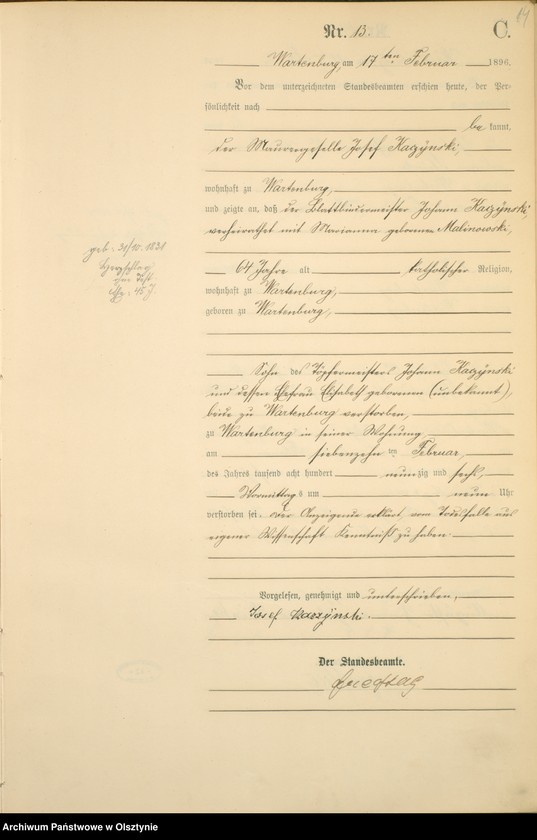 14
Nr. 13.
C.
Wartenburg, am 17 ten Februar 1896.
Vor dem unterzeichneten Standesbeamten erschien heute, der Per-
sönlichkeit nach
be kannt,
der Maurergeselle Josef Kaczÿnski,
wohnhaft zu Wartenburg,
und zeigte an, daß der Blattbindermeister Johann Kaczÿnski,
verheirathet mit Marianna geborenen Malinowski,
64 Jahre alt katholischer Religion,
wohnhaft zu Wartenburg,
geboren zu Wartenburg,
Sohn des Töpfermeisters Johann Kaczÿnski
und dessen Ehefrau Elisabeth geborenen (unbekannt),
beide zu Wartenburg verstorben,
zu Wartenburg in seiner Wohnung,
am siebenzehn ten Februar,
des Jahres tausend acht hundert neun zig und sechs,
Vormittags um neun Uhr
verstorben sei. Der Anzeigende erklärt vom Todesfalle aus
eigener Wissenschaft Kenntniß zu haben.
Vorgelesen, genehmigt und unterschrieben,
Josef Kaczÿnski.
Der Standesbeamte.
geb. 31/10. 1831
Herzschlag
45 J
Archiwum Państwowe w Olsztynie